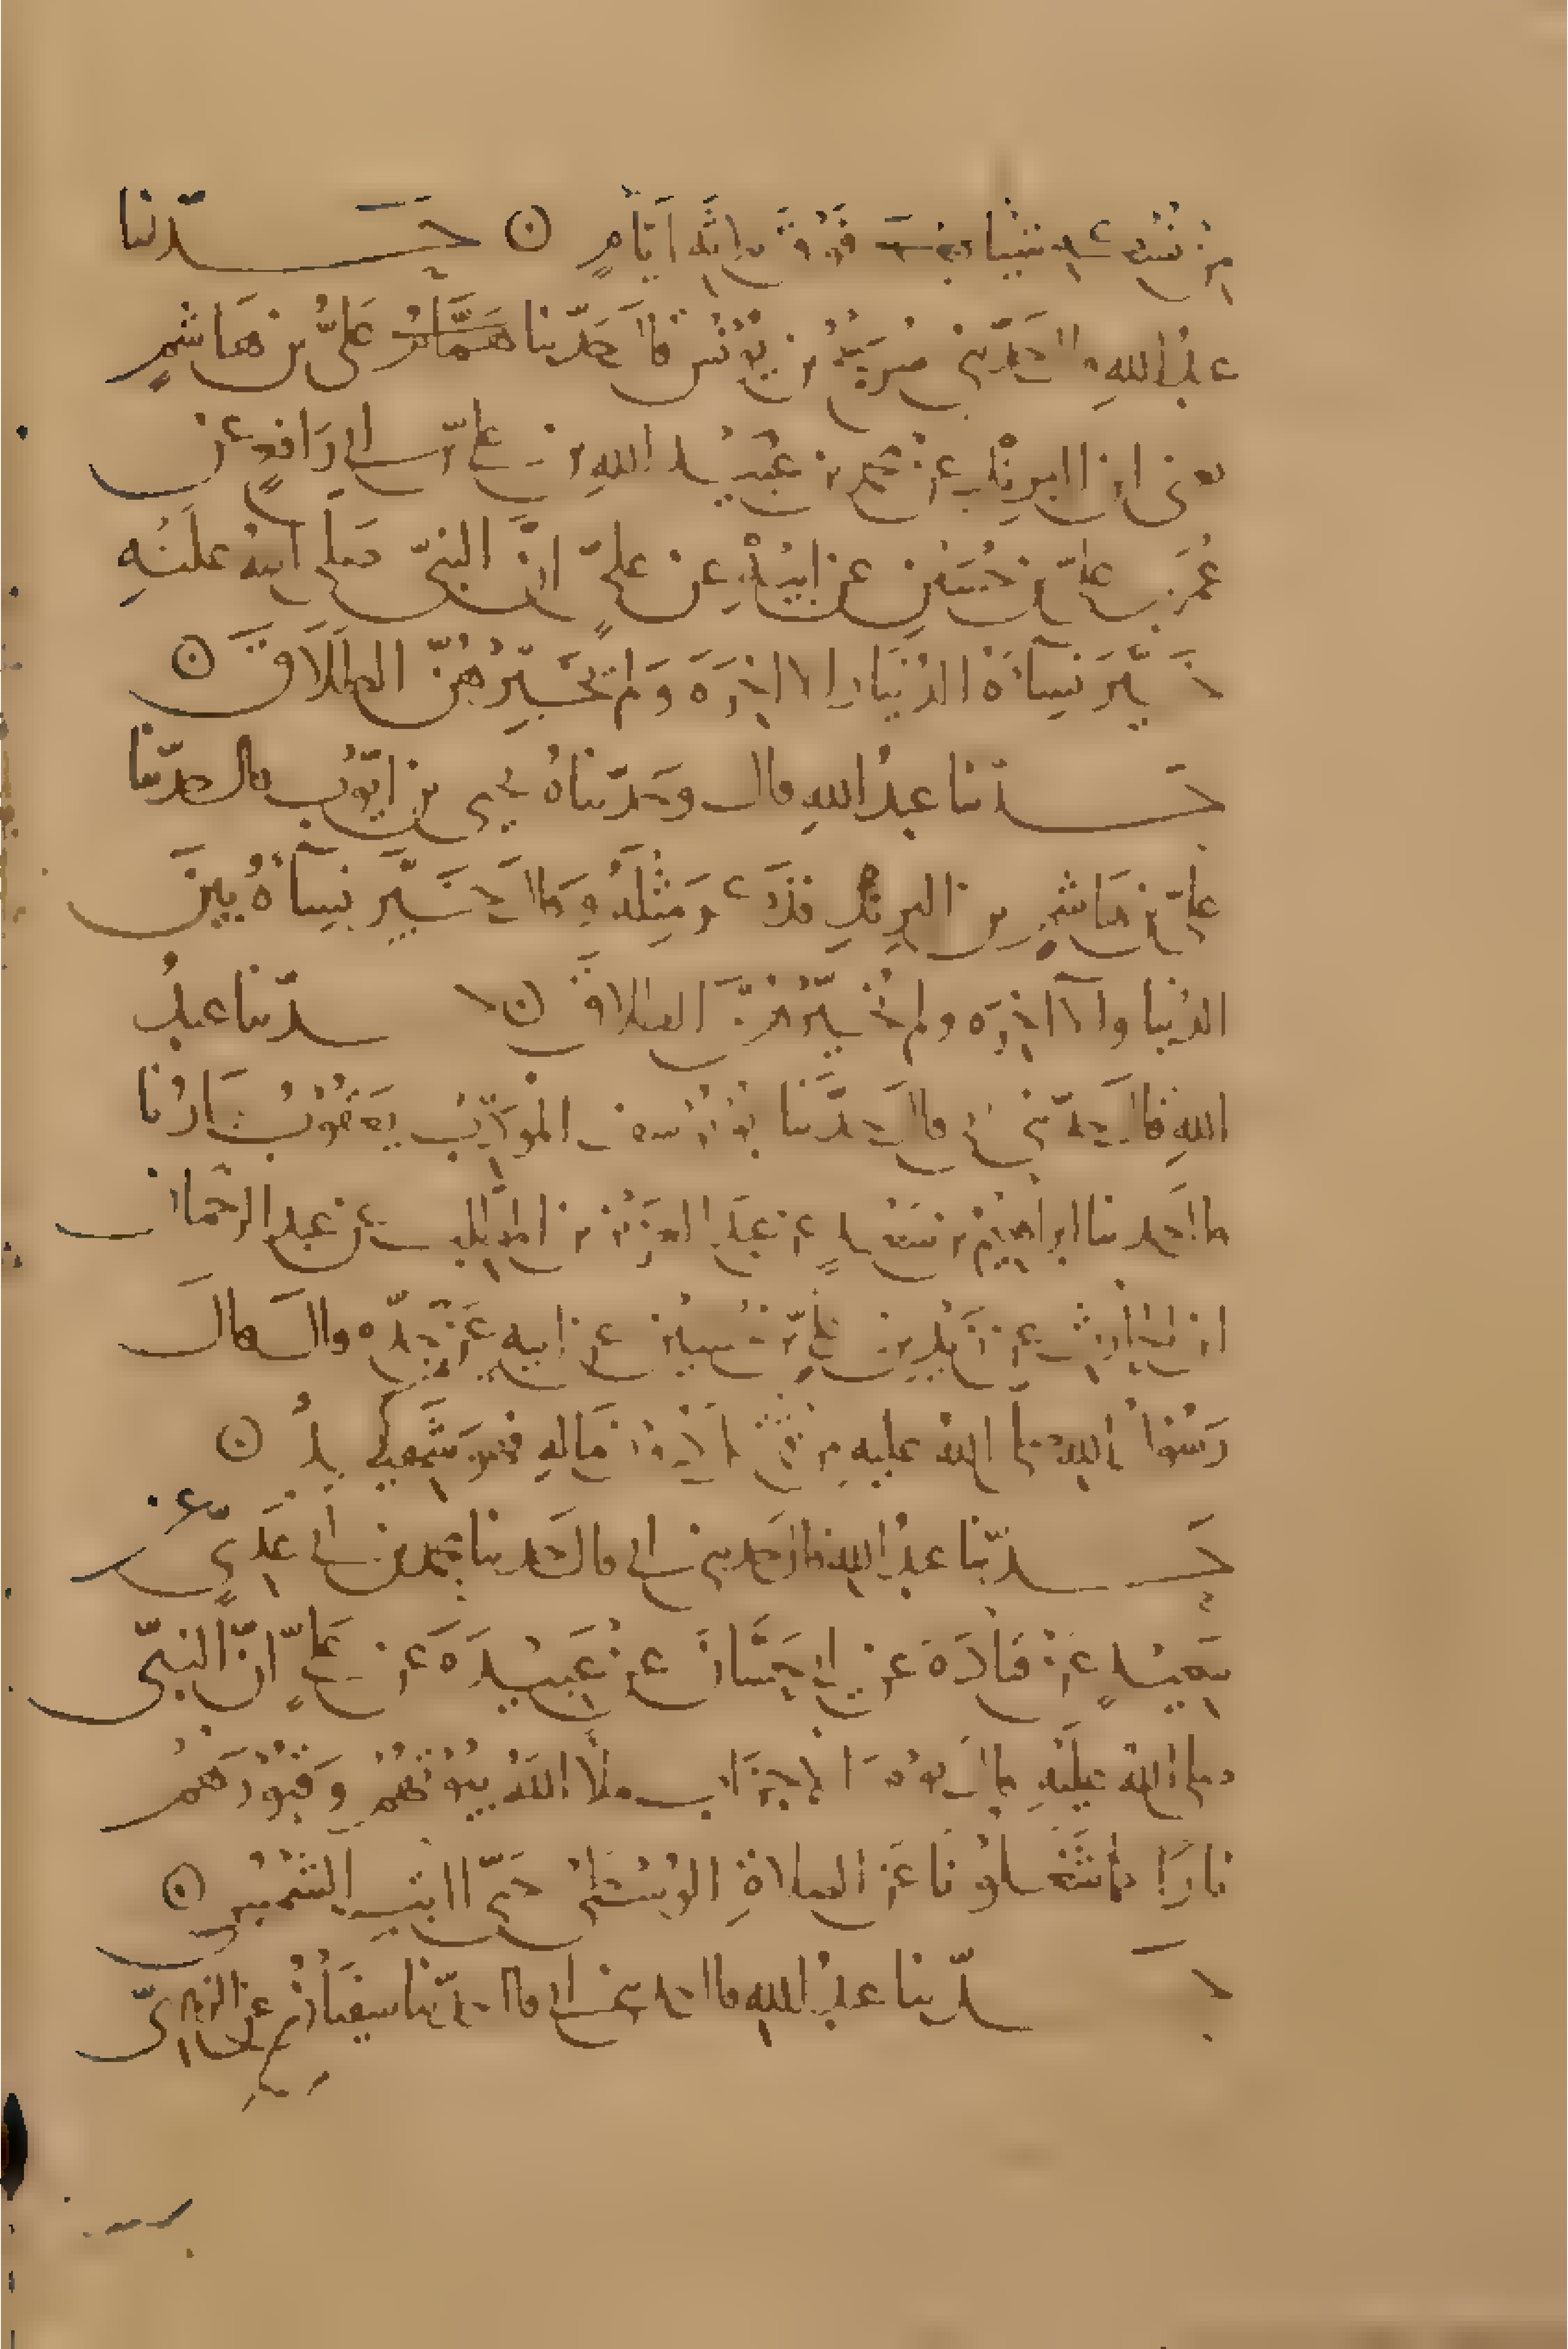 من نسككم شيئا بعد فوق ثلثة ايام ۞ حدثنا
عبد الله قال حدثنى سريج بن يونس قال حدثنا على بن هاشم
يعنى ابن البريد عن محمد بن عبيد الله بن على بن ابى رافع عن
عمر بن على بن حسين عن ابيه عن على ان النبى صلى الله عليه
خير نساءه الدنيا والاخرة ولم يخيرهن الطلاق ۞
حدثنا عبد الله قال وحدثناه يحيى بن ايوب قال حدثنا
على بن هاشم بن البريد فذكر مثله وقال خير نساءه بين
الدنيا والاخرة ولم يخيرهن الطلاق ۞ حدثنا عبد
الله قال حدثنى ابى قال حدثنا ابو يوسف المؤدب يعقوب جارنا
قال حدثنا ابراهيم بن سعد عن عبد العزيز بن المطلب عن عبد الرحمان
ابن الحارث عن زيد بن على بن حسين عن ابيه عن جده قال قال
رسول الله صلى الله عليه من قتل دون ماله فهو شهيد ۞
حدثنا عبد الله قال حدثنى ابى قال حدثنا محمد بن ابى عدى عن
سعيد عن قتادة عن ابى حسان عن عبيدة عن على ان النبى
صلى الله عليه قال يوم الاحزاب ملأ الله بيوتهم وقبورهم
نارا كما شغلونا عن الصلاة الوسطى حتى ابت الشمس ۞
حدثنا عبد الله قال حدثنى ابى قال حدثنا سفيان عن الزهرى